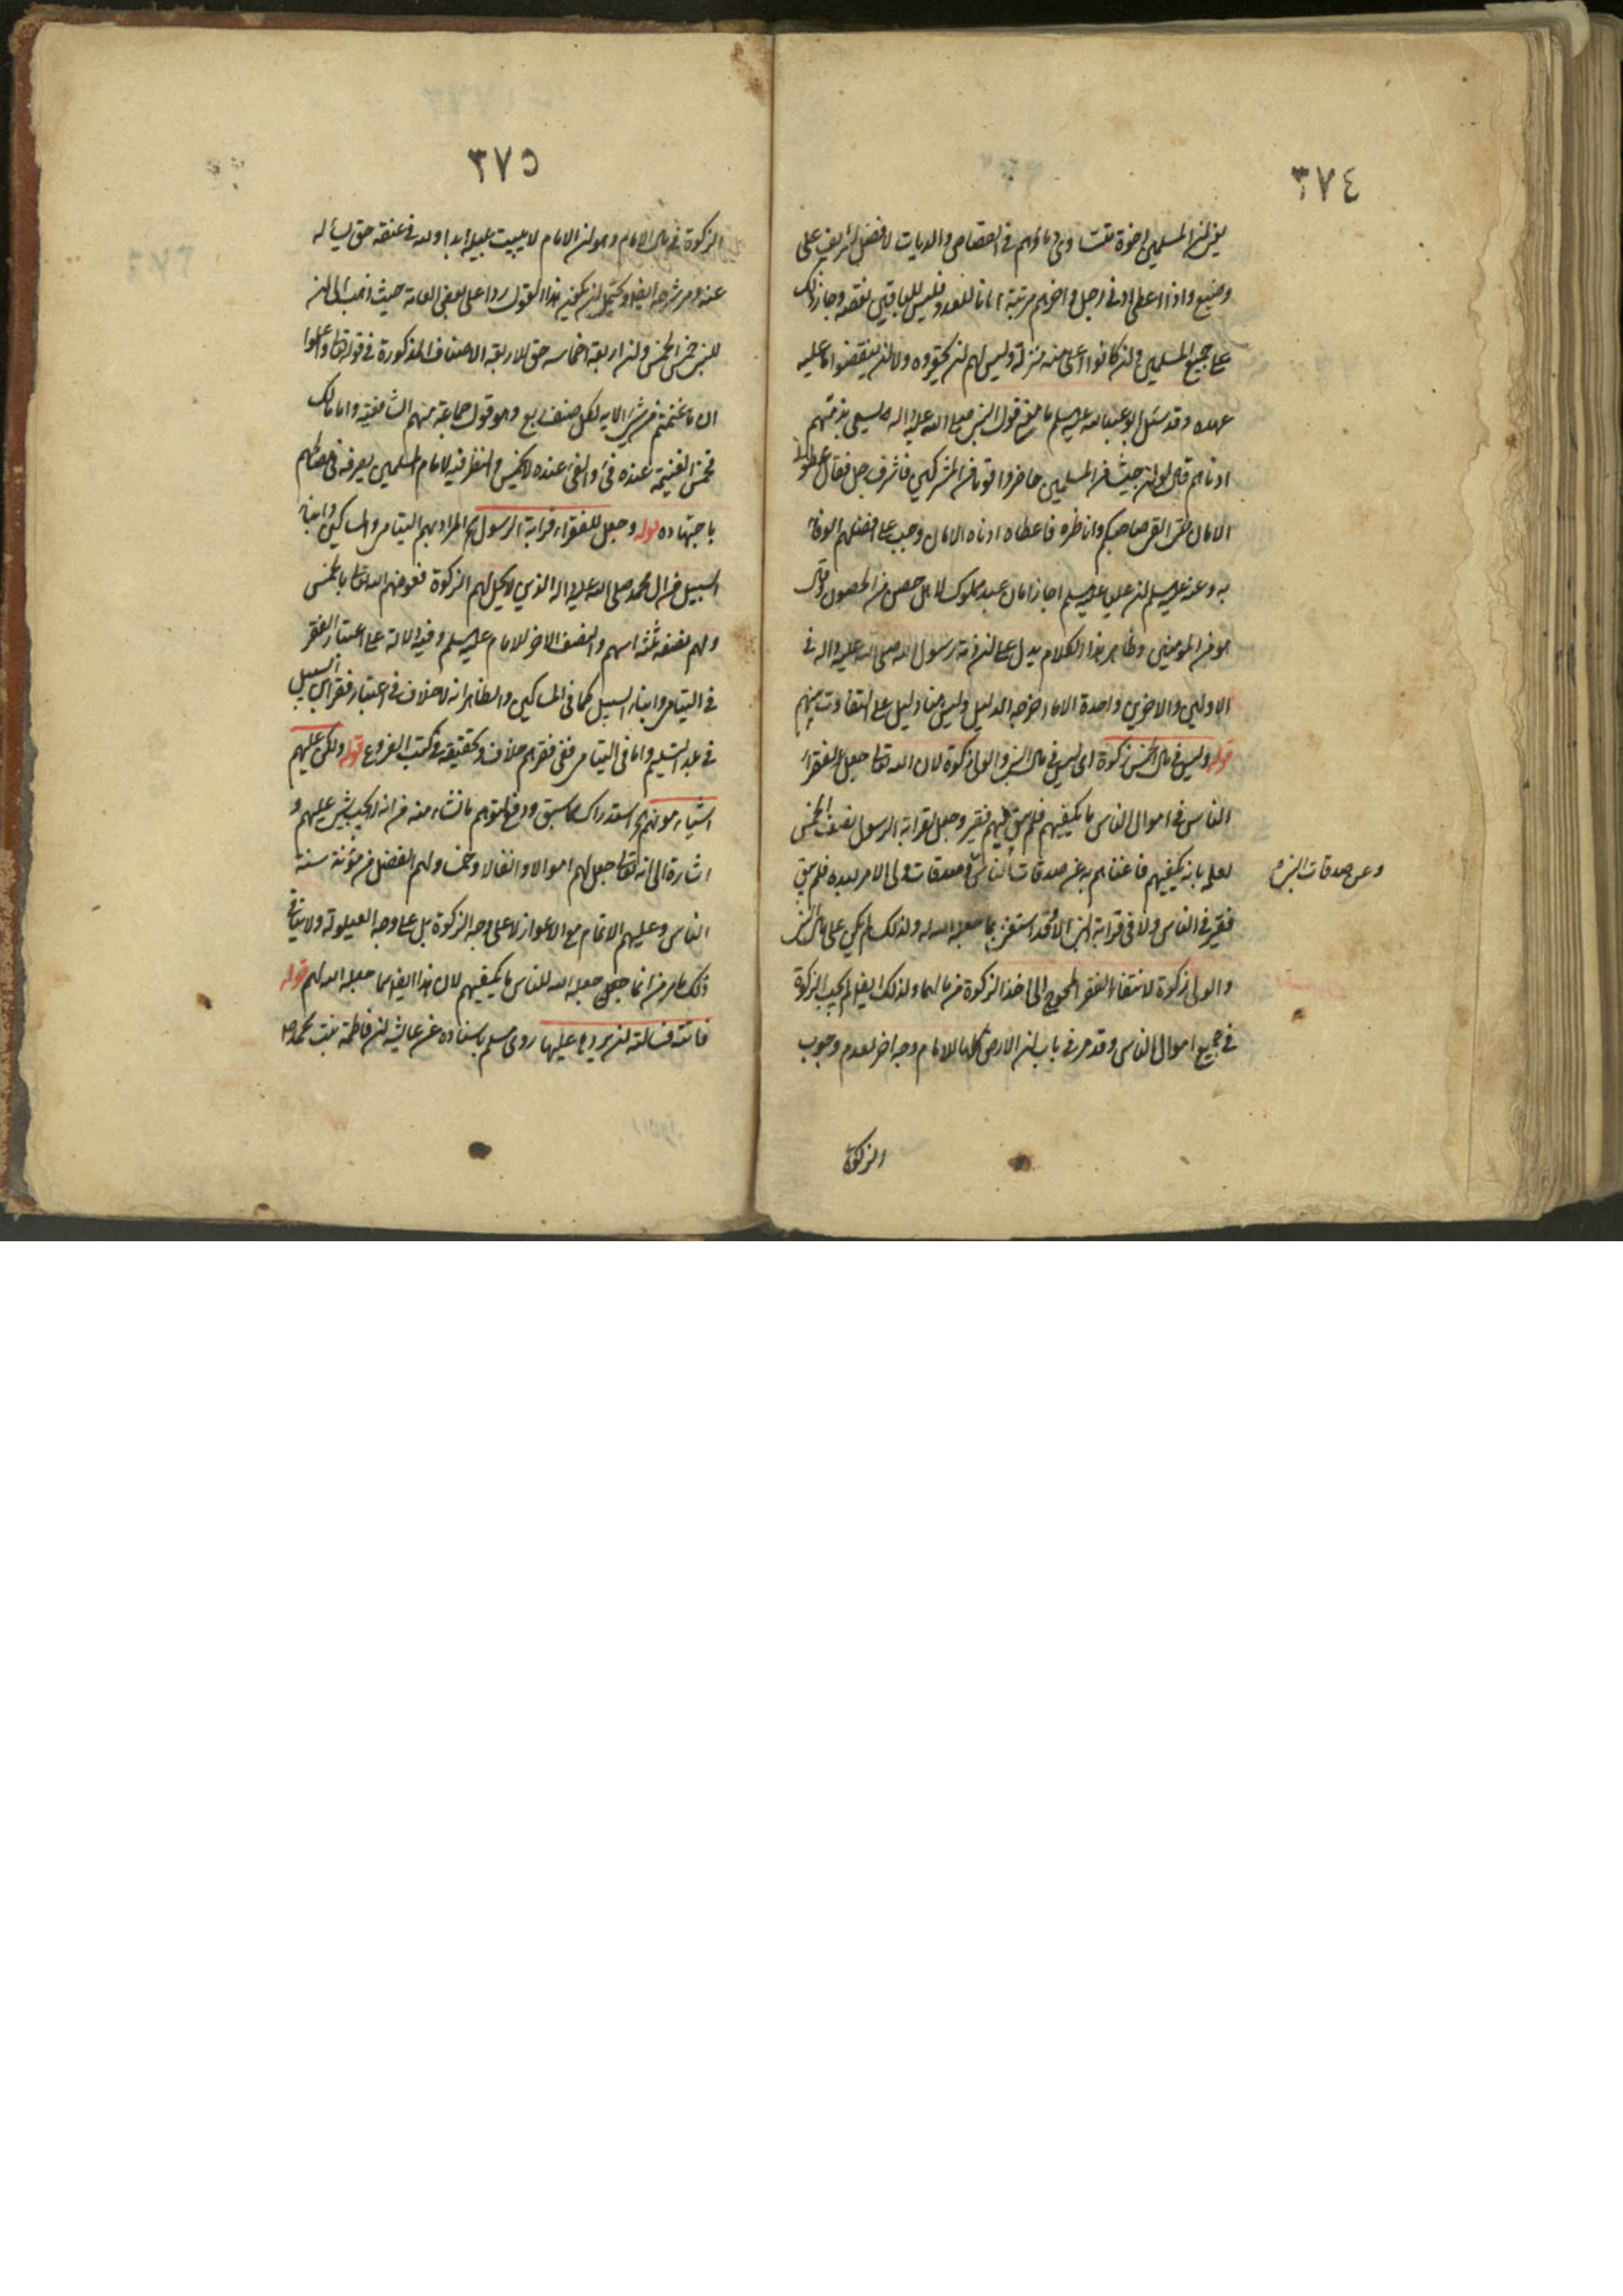 ٣٧٤
يعنى ان المسلمين اخوة تتساوى دماؤهم فى القصاص والديات لا فضل لشريف على
وضيع واذا اعطى ادنى رجل فى اخرهم مرتبة امانا للعدو فليس للباقين نقضه وجاز ذلك
على جميع المسلمين وان كانوا اعلى منه منزلة وليس لهم ان يحقروه ولا ان ينقضوا امانا عليه
عهده وقد سئل ابو عبدالله عليه السلم ما معنى قول النبى صلى الله عليه واله يسعى بذمتهم
ادناهم قال لو ان جيشا من المسلمين حاضروا قوما من المشركين فاشرف رجل فقال اعطونى
الامان حتى القى صاحبكم واناظره فاعطاه ادناه الامان وجب على افضلهم الوفاء
به وعنه عليه السلم ان عليا عليه السلم اجاز امان عبد مملوك لاهل حصن من الحصون وقال
هو من المؤمنين وظاهر هذا الكلام يدل على ان ذمة رسول الله صلى الله عليه واله فى
الاولين والاخرين واحدة الا ما اخرجه الدليل وليس هنا دليل على التفاوت بينهم
قوله وليس فى مال الخمس زكوة اى ليس فى مال النبى والولى زكوة لان الله تعالى جعل للفقراء
الناس فى اموال الناس ما يكفيهم فلم يبق فيهم فقير وجعل لقرابة الرسول نصف الخمس
لعلمه بانه يكفيهم فاغناهم به عن صدقات الناس وصدقات ولى الامر بعده فلم يبق
وعن صدقات النبى
فقير فى الناس ولا فى قرابة النبى الا وقد استغنى بما جعله الله له ولذلك لم يكن على مال النبى
والولى زكوة لانتفاء الفقر المحوج الى اخذ الزكوة من مالهما ولذلك ايضا لم يجب الزكوة
فى جميع اموال الناس وقد مر فى باب ان الارض كلها للامام وجه اخر لعدم وجوب
الزكوة
٣٧٥
الزكوة فى مال الامام وهو ان الامام لا يبيت ليلة ابدا ولله فى عنقه حق يسأله
عنه ومر شرحه ايضا ويحتمل ان يكون هذا القول ردا على بعض العامة حيث ذهب الى ان
للنبى خمس الخمس وان اربعة اخماسه حق الاربعة الاصناف المذكورة فى قوله تعالى واعلموا
ان ما غنمتم من شئ الايه لكل صنف ربع وهو قول جماعة منهم الشافعية واما مالك
فخمس الغنيمة عنده فئ والفئ عنده لا يخمس والنظر فيه للامام المسلمين يصرفه فى مصالحهم
باجتهاده قوله وجعل للفقراء قرابة الرسول الخ المراد بهم اليتامى والمساكين وابناء
السبيل من ال محمد صلى الله عليه واله الذين لا يحل لهم الزكوة فعوضهم الله تعالى بالخمس
ولهم نصفه ثلثة اسهم والنصف الاخر للامام عليه السلم وفيه دلالة على اعتبار الفقر
فى اليتامى وابناء السبيل كما فى المساكين والظاهر انه لا خلاف فى اعتبار فقر ابن السبيل
فى بلد التسليم واما فى اليتامى ففى فقرهم خلاف وتحقيقه فى كتب الفروع قوله ولكن عليهم
اشياء مؤنهم الخ استدراك لما سبق ودفع لتوهم ما نشاء منه من انه لا يجب شئ عليهم و
اشارة الى انه تعالى جعل لهم اموالا وانفالا وخمسا ولهم الفضل من مؤنة سنة
الناس وعليهم الاتمام مع الاعواز لا على وجه الزكوة بل على وجه العيلولة ولا ينافى
ذلك ما مر من انما جعل جعله الله للناس ما يكفيهم لان هذا ايضا مما جعله الله لهم قوله
فاتته فسألته ان يردها عليها روى مسلم باسناده عن عايشه ان فاطمة بنت محمد